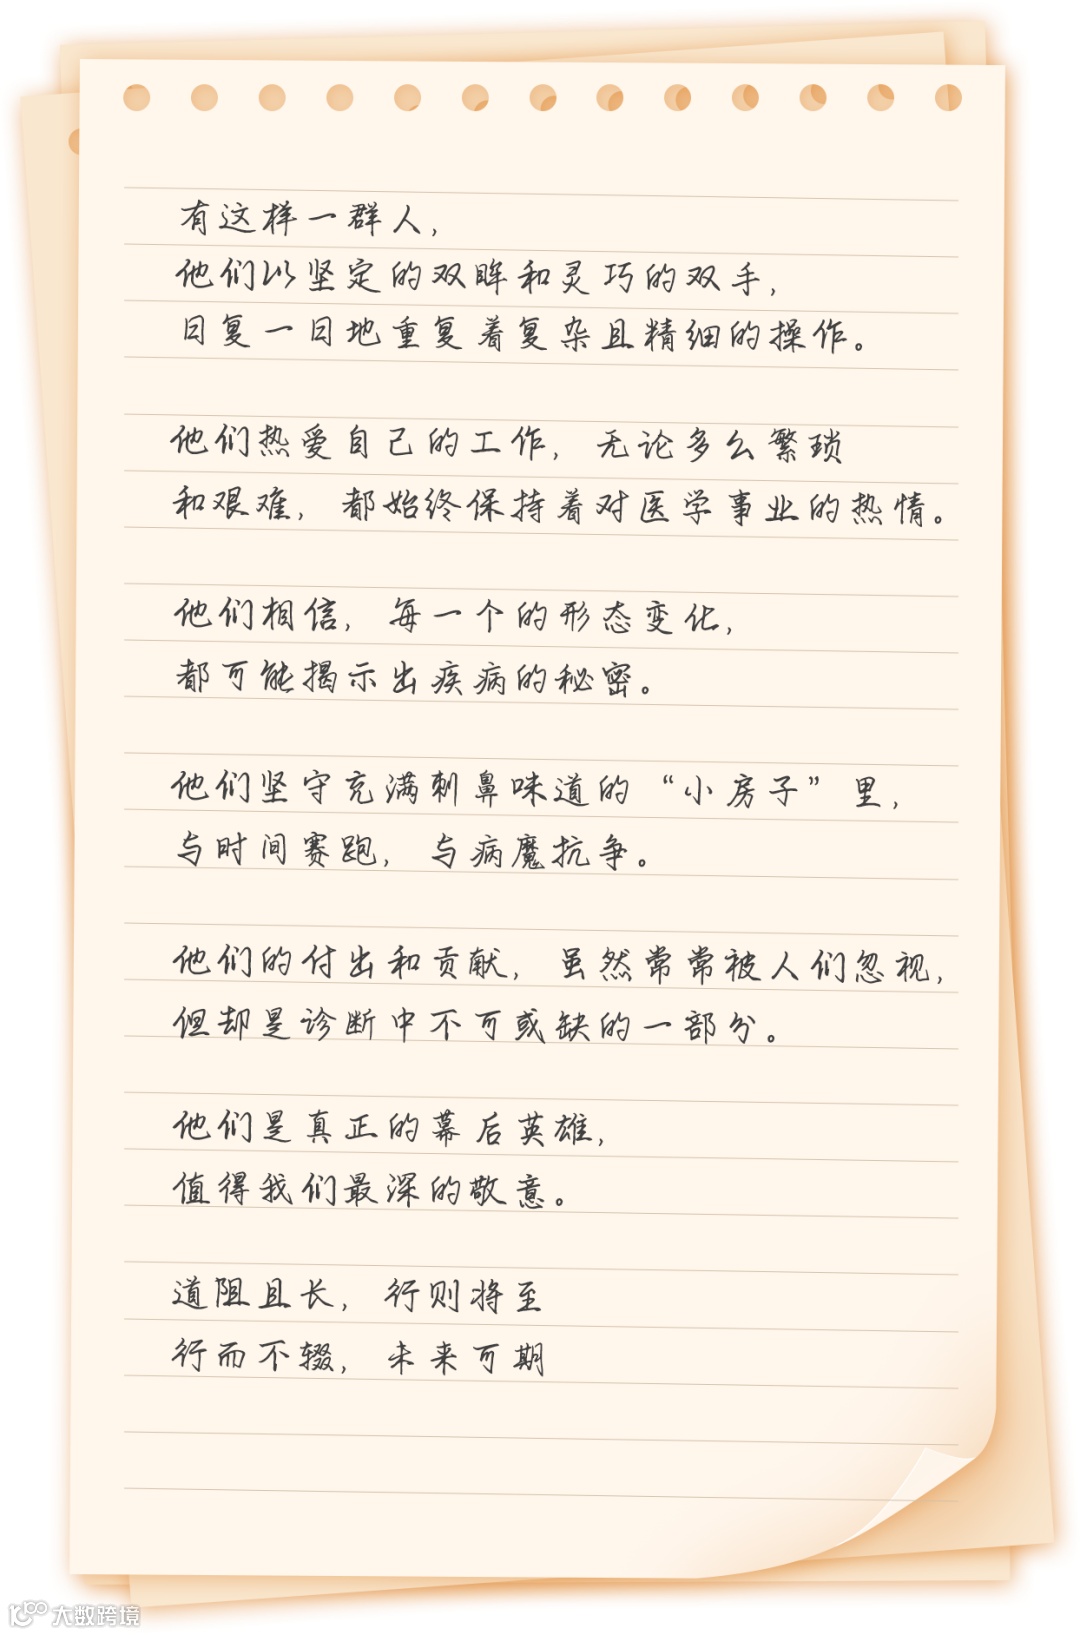 有这样一群人，
他们以坚定的双眸和灵巧的双手，
日复一日地重复着复杂且精细的操作。
他们热爱自己的工作，无论多么繁琐
和艰难，都始终保持着对医学事业的热情。
他们相信，每一个的形态变化，
都可能揭示出疾病的秘密。
他们坚守充满刺鼻味道的“小房子”里，
与时间赛跑，与病魔抗争。
他们的付出和贡献，虽然常常被人们忽视，
但却是诊断中不可或缺的一部分。
他们是真正的幕后英雄，
值得我们最深的敬意。
道阻且长，行则将至
行而不辍，未来可期
大数跨境